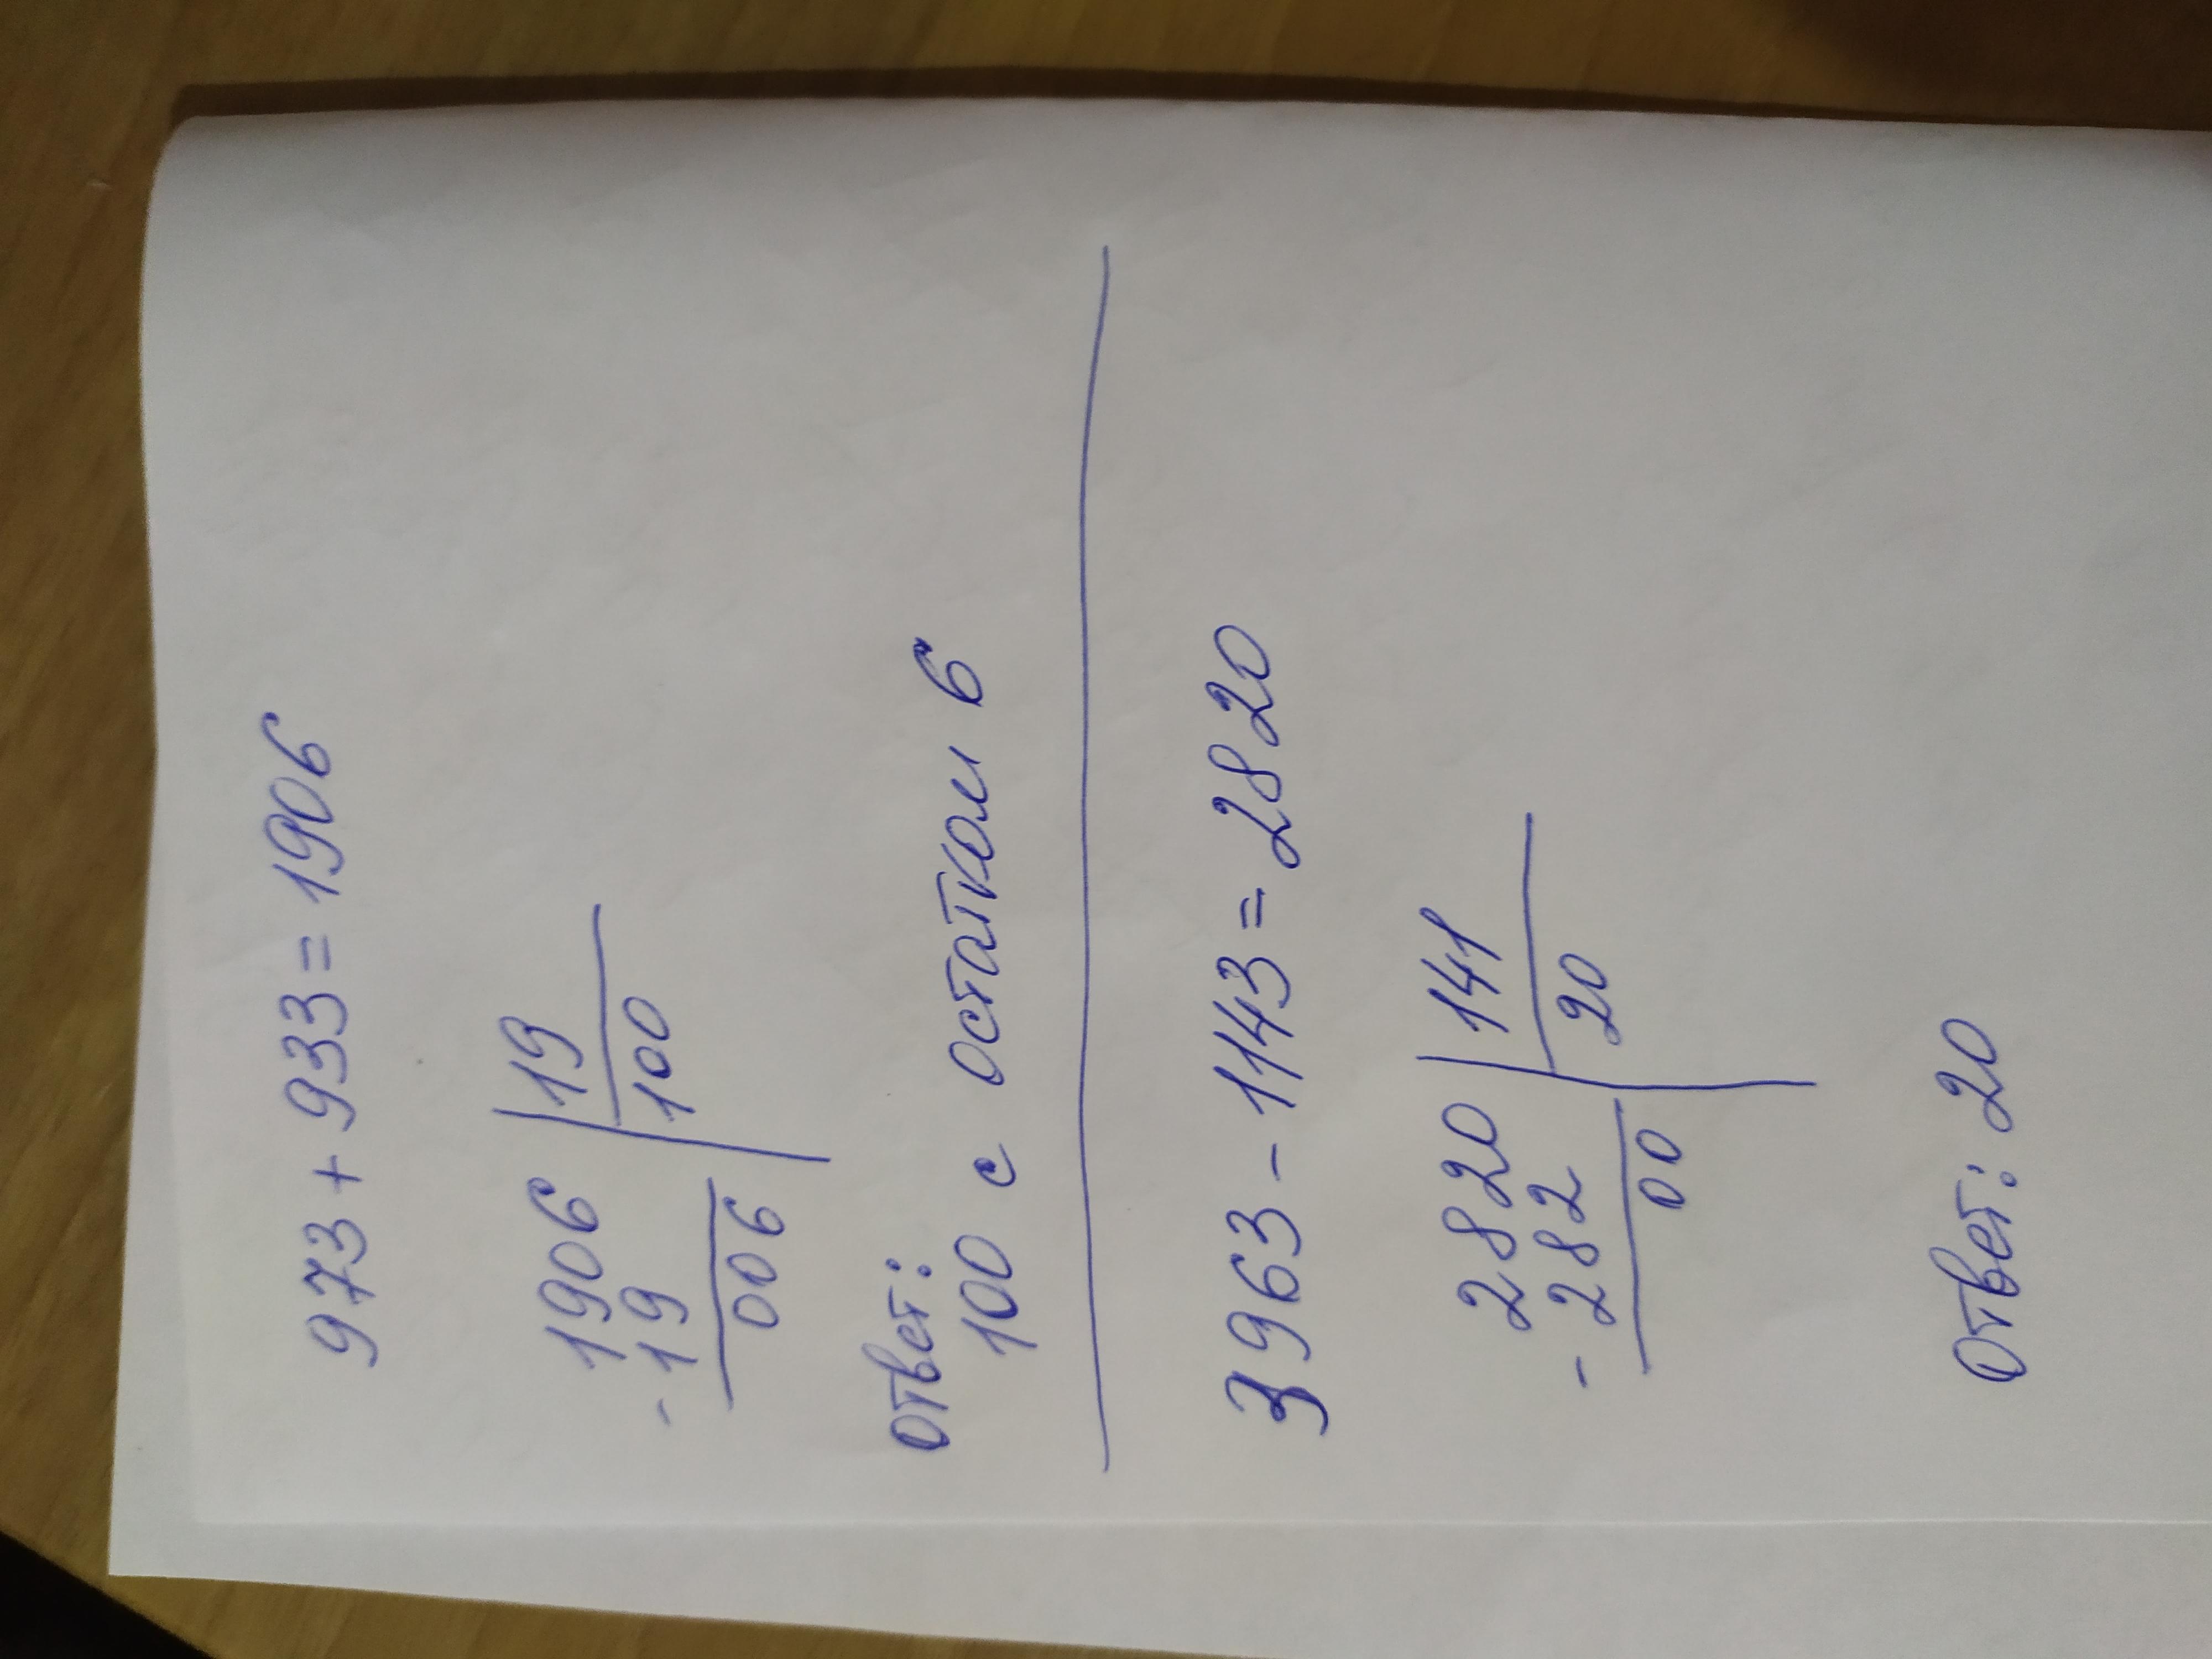 973 + 933 = 1906
1906 | 19
- 19 100
006
Ответ:
100 с остатком 6
3963 - 1143 = 2820
2820 | 141
- 282 20
00
Ответ: 20